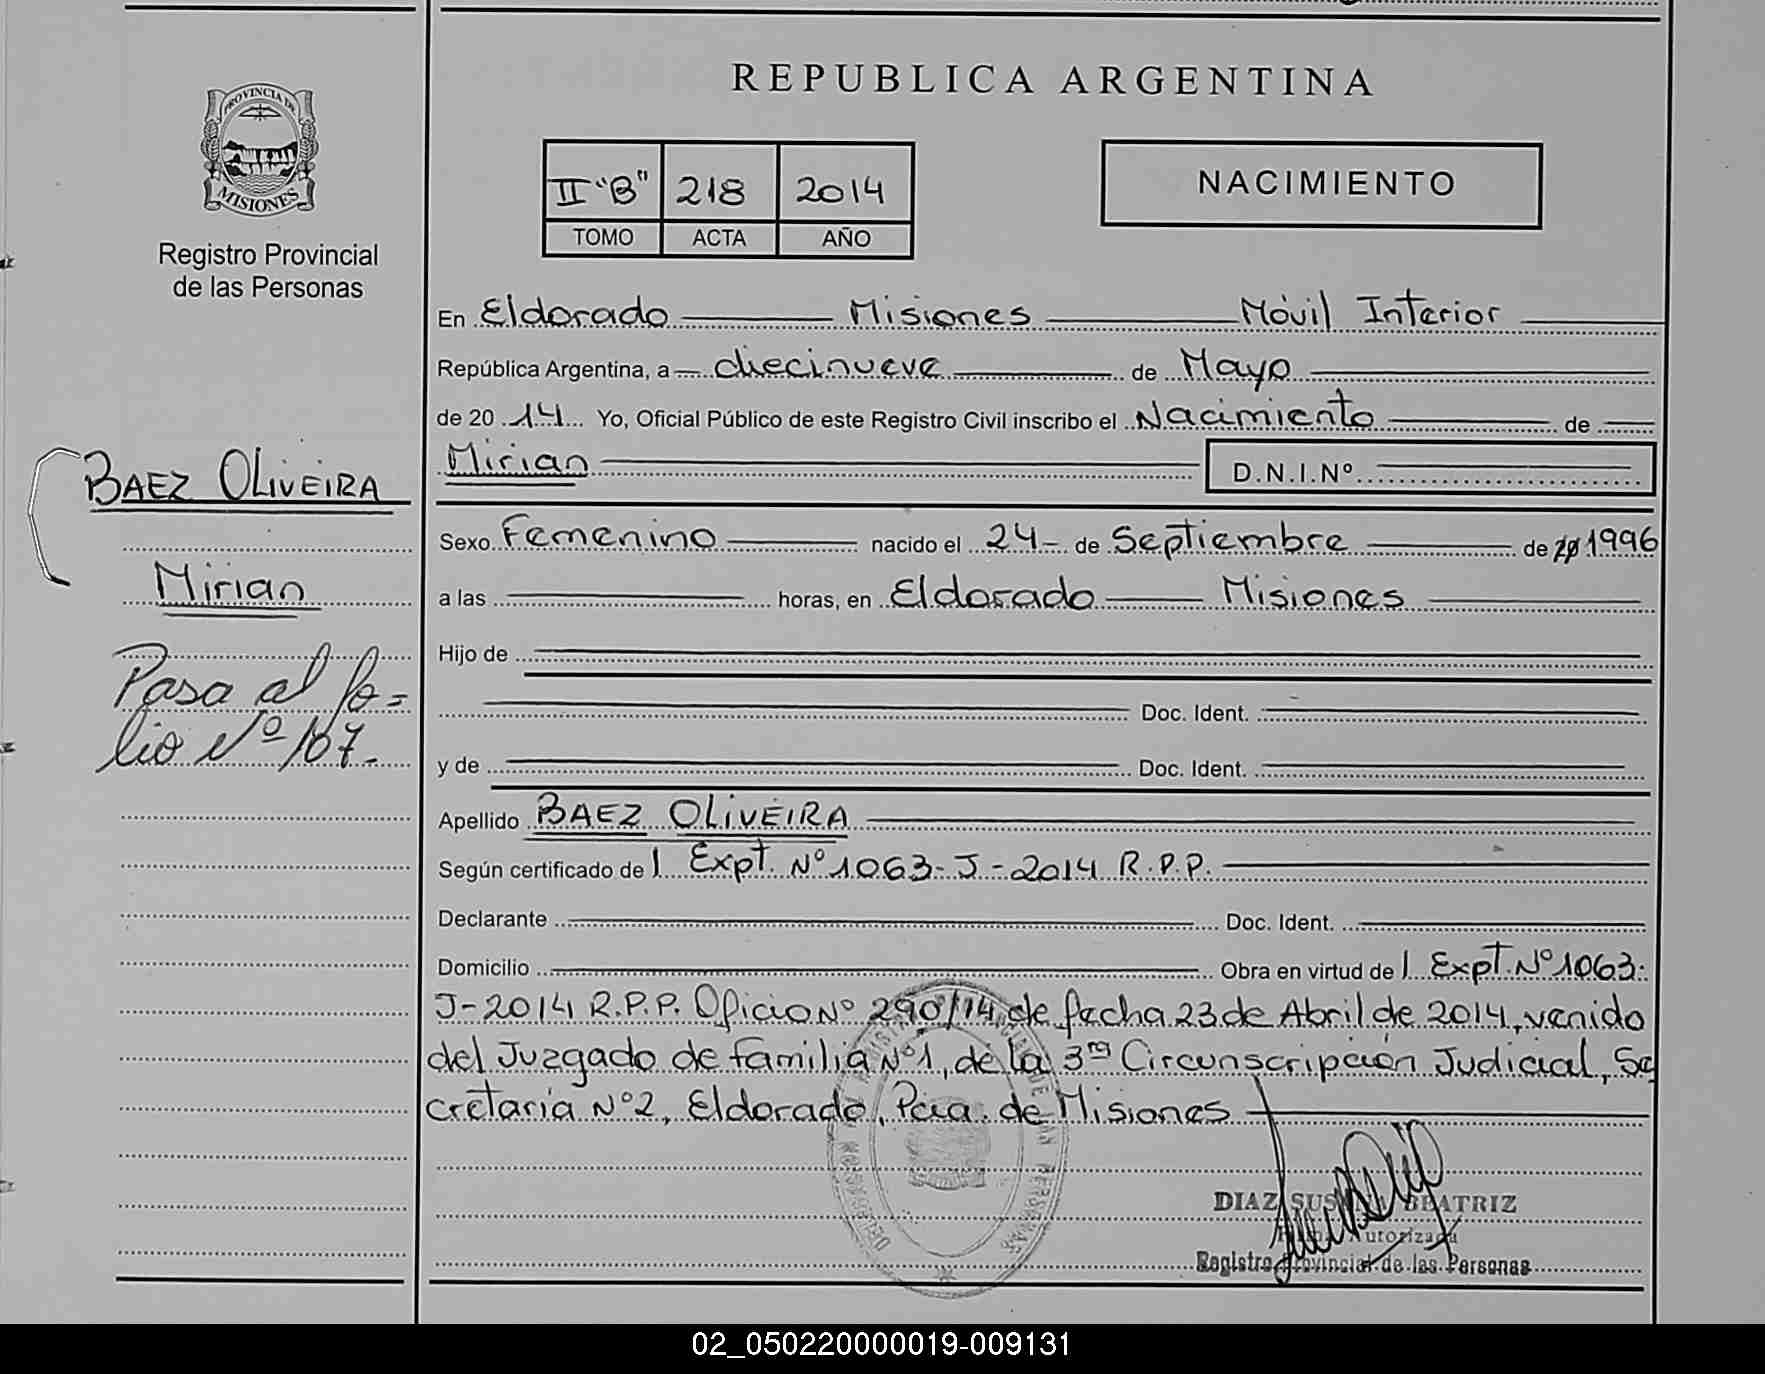 REPUBLICA ARGENTINA
PROVINCIA DE
MISIONES
Registro Provincial
de las Personas
II "B" 218 2014
TOMO ACTA AÑO
NACIMIENTO
En Eldorado Misiones Móvil Interior
República Argentina, a diecinueve de Mayo
de 20 14 Yo, Oficial Público de este Registro Civil inscribo el Nacimiento de
Mirian D.N.I.Nº
BAEZ OLIVEIRA
Mirian
Pasa al fo=
lio Nº 167.
Sexo Femenino nacido el 24- de Septiembre de 20 1996
a las horas, en Eldorado Misiones
Hijo de
Doc. Ident.
y de Doc. Ident.
Apellido BAEZ OLIVEIRA
Según certificado de Expt. Nº 1063-J-2014 R.P.P.
Declarante Doc. Ident.
Domicilio Obra en virtud de Expt. Nº 1063-
J-2014 R.P.P. Oficio Nº 290/14 de fecha 23 de Abril de 2014, venido
del Juzgado de Familia Nº 1, de la 3ra Circunscripción Judicial, Se
cretaría Nº 2, Eldorado, Pcia. de Misiones
DIAZ SUSANA BEATRIZ
Autorizada
Registro Provincial de las Personas
02_050220000019-009131